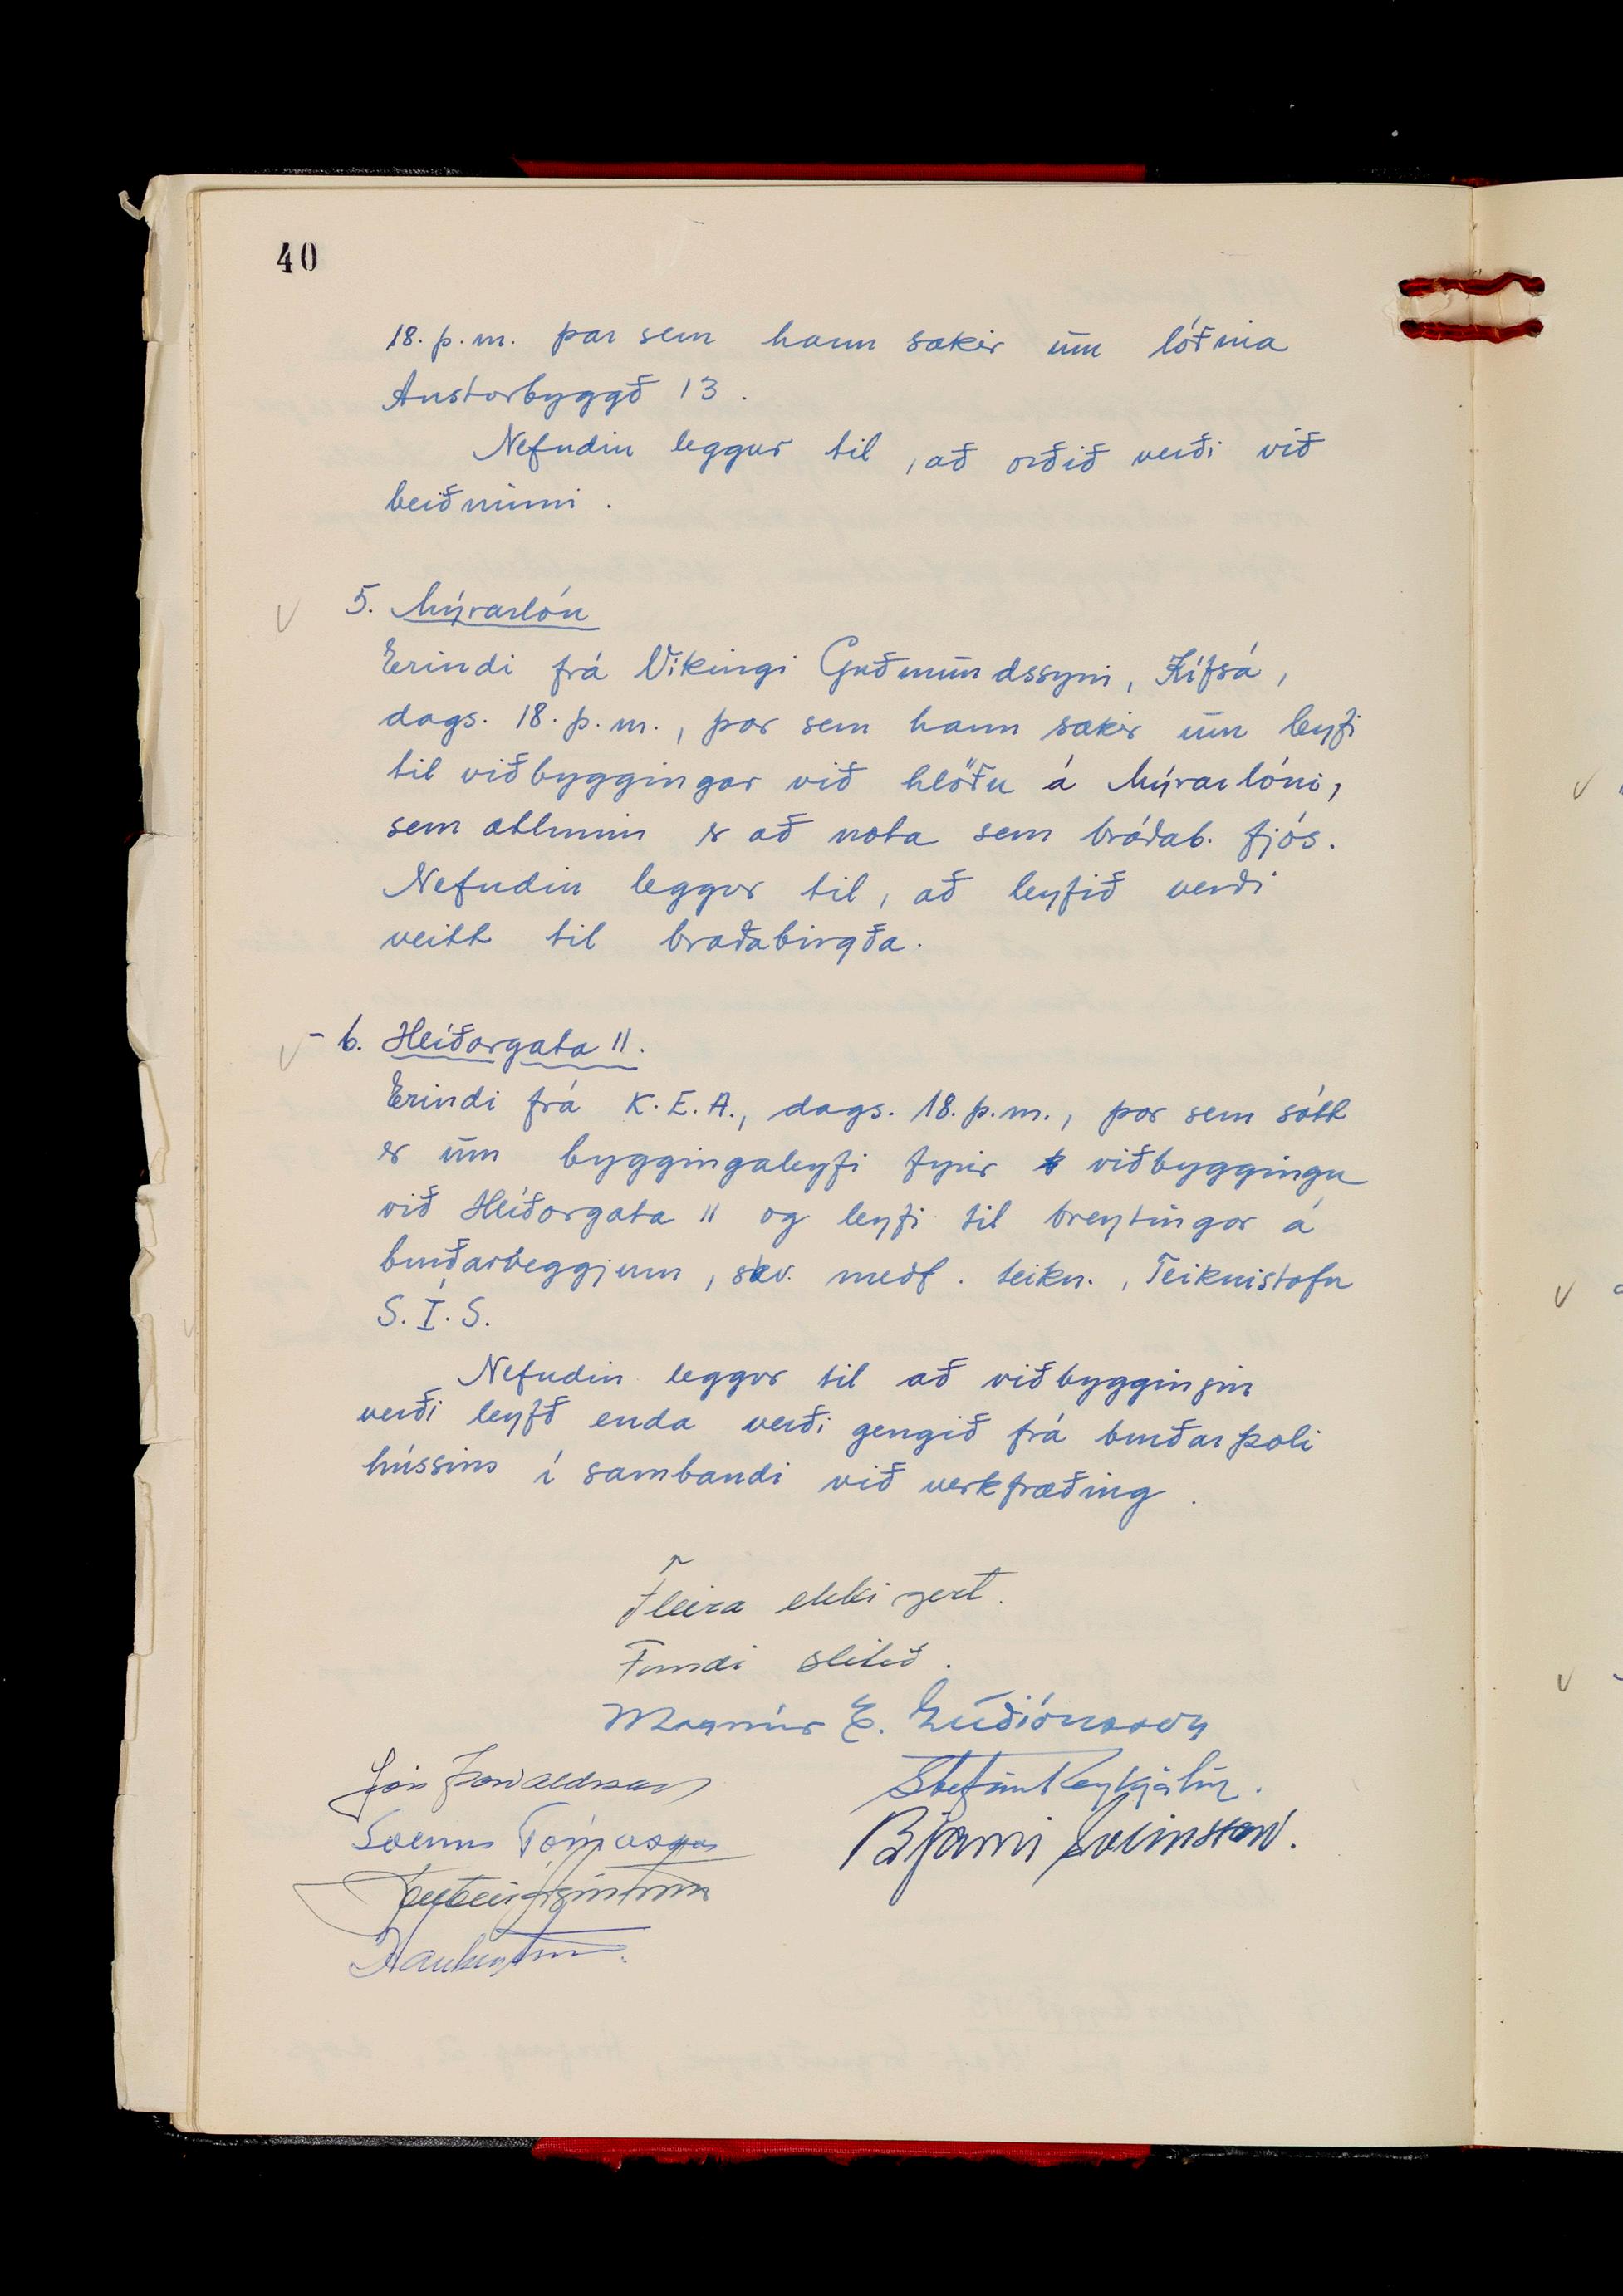 40
18. þ.m. þar sem hann sækir um lóðina
Austurbyggð 13.
Nefndin leggur til, að orðið verði við
beiðninni.
5. Mýrarlón
Erindi frá Víkingi Guðmundssyni, Kífsá,
dags. 18. þ.m., þar sem hann sækir um leyfi
til viðbyggingar við hlöðu á Mýrarlóni,
sem ætlunin er að nota sem bráðab. fjós.
Nefndin leggur til, að leyfið verði
veitt til bráðabirgða.
- 6. Hlíðargata 11.
Erindi frá K.E.A., dags. 18. þ.m., þar sem sótt
er um byggingaleyfi fyrir viðbyggingu
við Hlíðargata 11 og leyfi til breytingar á
burðarveggjum, skv. meðf. teikn., Teiknistofu
S.Í.S.
Nefndin leggur til að viðbyggingin
verði leyfð enda verði gengið frá burðarþoli
hússins í sambandi við verkfræðing.
Fleira ekki gert.
Fundi slitið.
Magnús E. Guðjónsson
Jón Þorvaldsson
Stefán Reykjalín.
Tómasson
Bjarni Sveinsson.